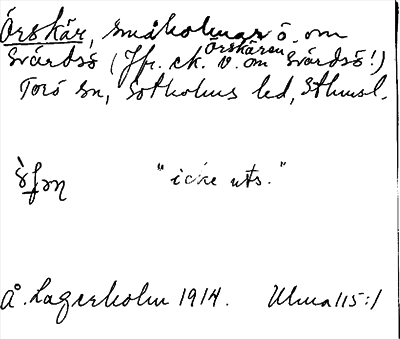 Örskär, småholmar ö. om
Svärdsö (Jfr. ck. Örskären v. om Svärdsö!)
Torö sn, Sotholms hd, Sthmsl.
"icke uts."
Å. Lagerholm 1914. Ulma 115:1